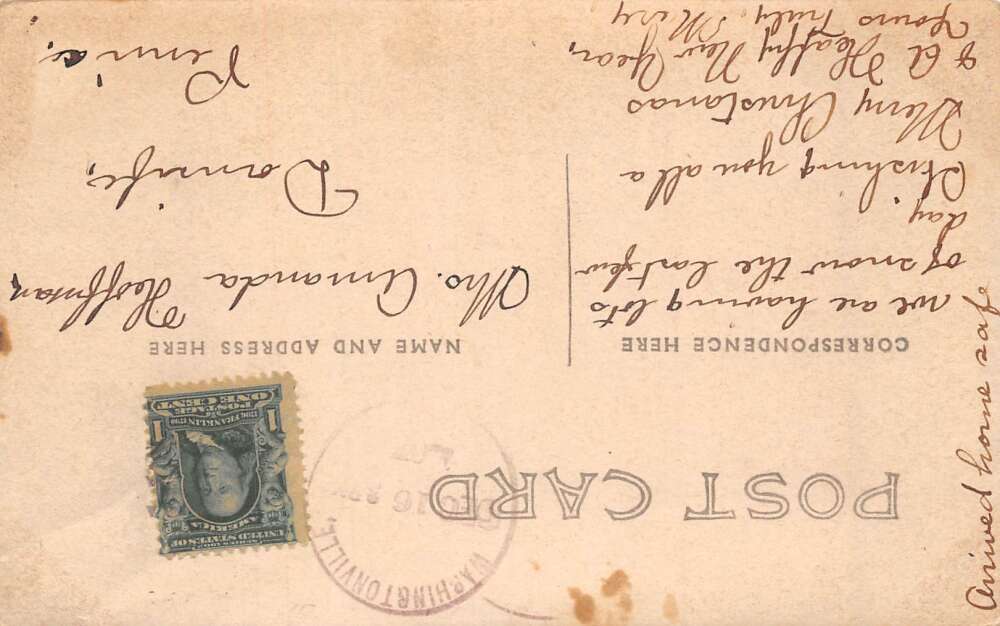 POST CARD
CORRESPONDENCE HERE
NAME AND ADDRESS HERE
WASHINGTONVILLE
DEC 16
SERIES 1902
UNITED STATES OF
AMERICA
1706 FRANKLIN 1790
1 POSTAGE 1
ONE CENT
we are having lots
of snow the last few
day.
Wishing you all a
Merry Christamas
& A Happy New Year,
Yours Truly Mery
Arrived home safe
Mrs. Amanda Hoffman,
Danville,
Penna,